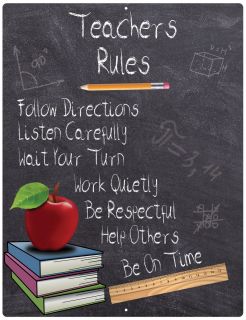 Teachers
Rules
90°
π = 3,14
Follow Directions
Listen Carefully
Wait Your Turn
Work Quietly
Be Respectful
Help Others
Be On Time